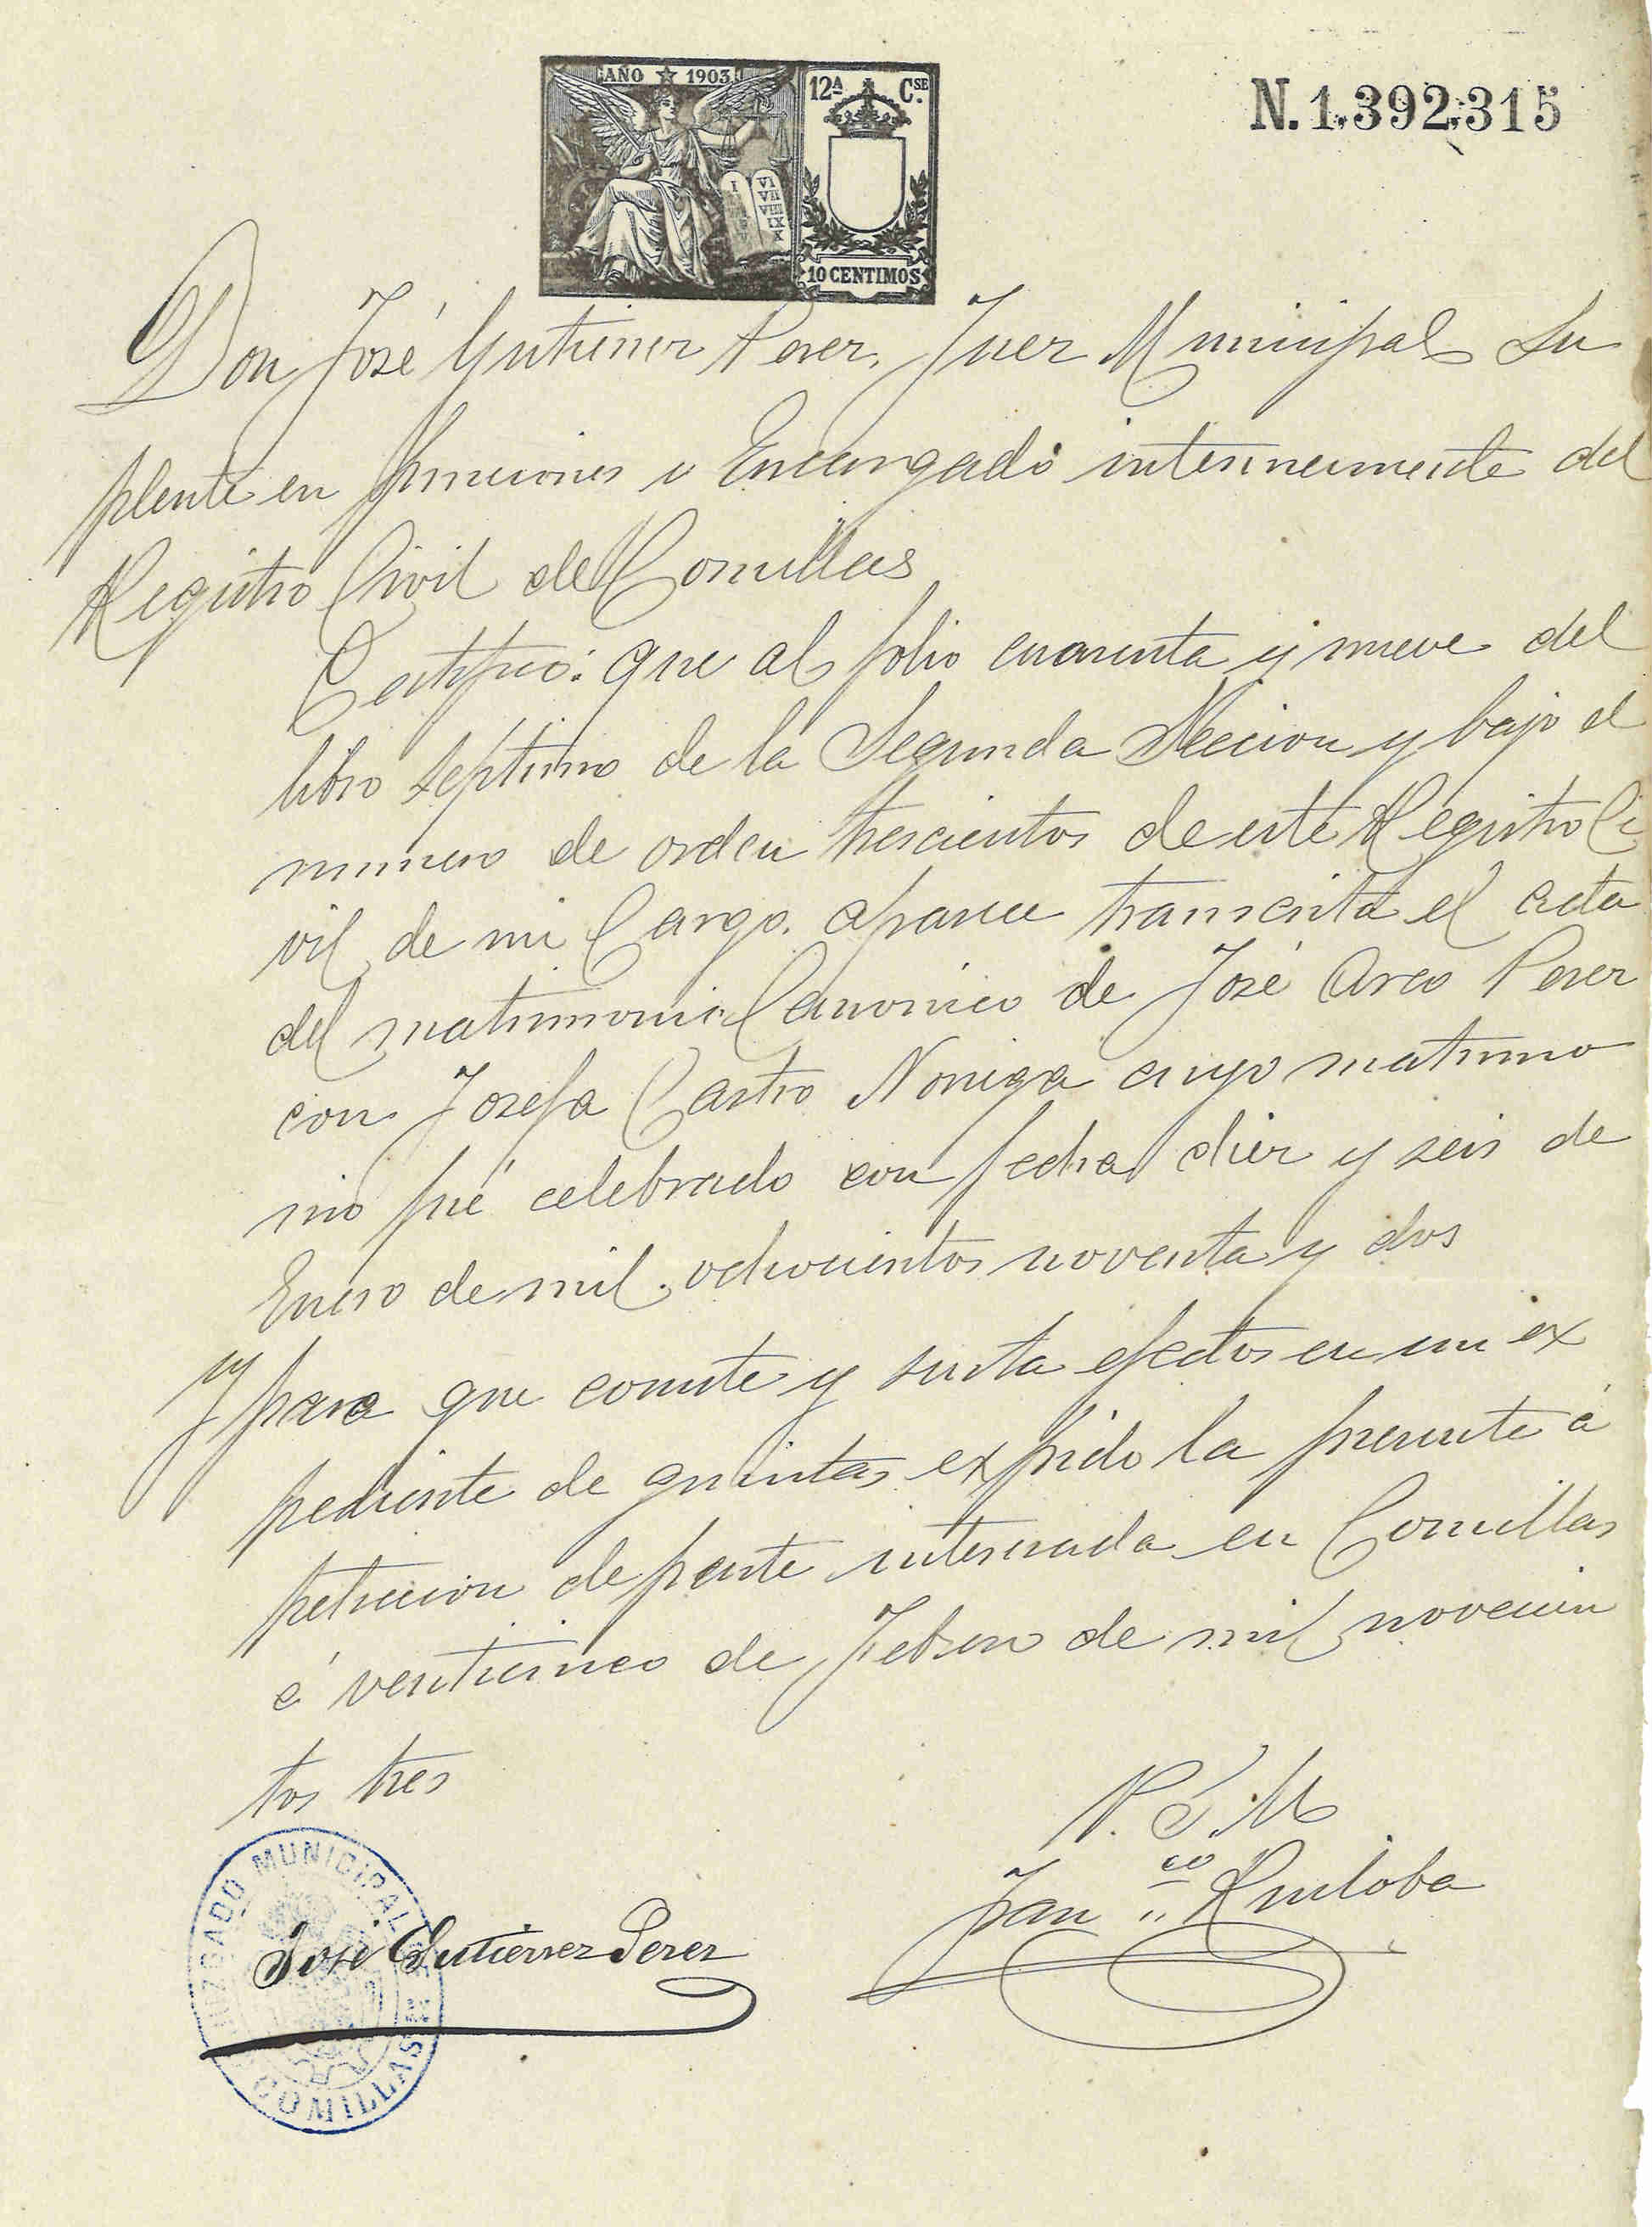 AÑO 1903
12ª Cse.
10 CENTIMOS
N.1.392.315
Don José Gutierrez Perez, Juez Municipal Su
plente en funciones y Encargado interinamente del
Registro Civil de Comillas
Certifico: que al folio cuarenta y nueve del
libro septimo de la Segunda Seccion y bajo el
numero de orden trescientos de este Registro Ci
vil de mi Cargo. aparece transcrita el acta
del matrimonio Canonico de José Arco Perez
con Josefa Castro Noriega cuyo matrimo
nio fué celebrado con fecha diez y seis de
Enero de mil ochocientos noventa y dos
Y para que conste y surta efectos en un ex
pediente de quintas expido la presente á
peticion de parte interesada en Comillas
á venticinco de Febrero de mil novecien
tos tres
P. S. M
Franco Ruiloba
José Gutierrez Perez
JUZGADO MUNICIPAL
COMILLAS